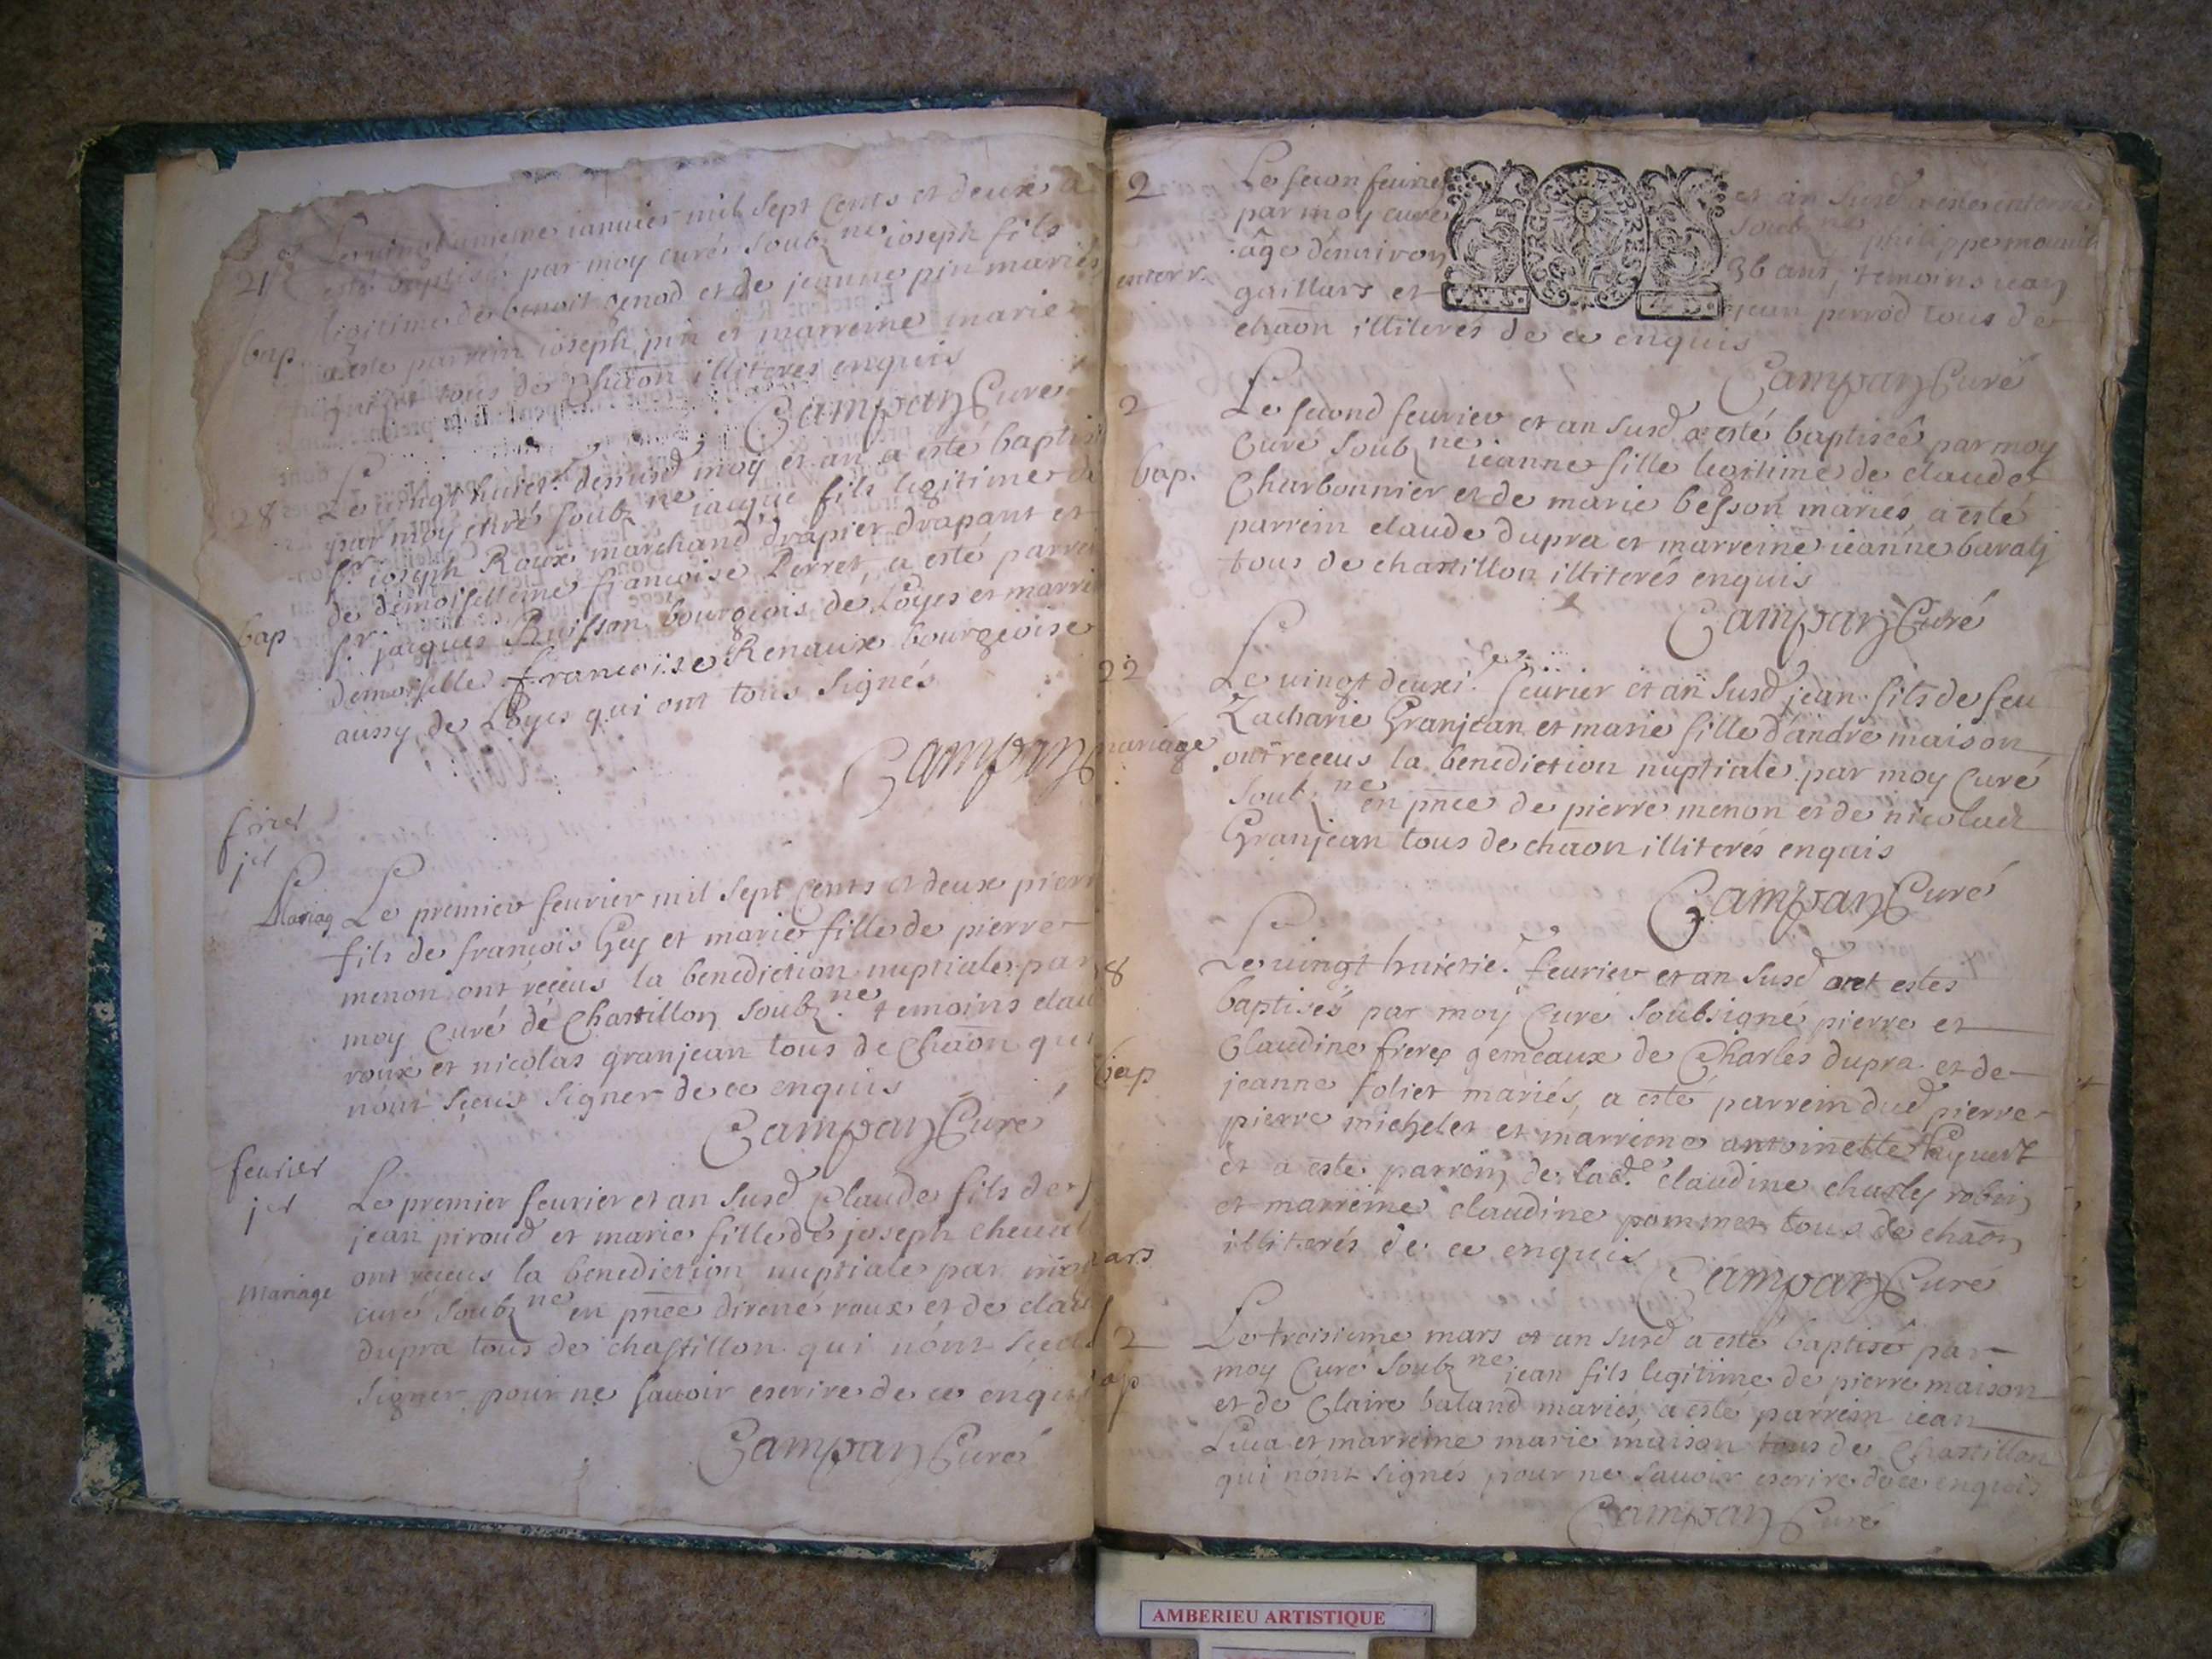 21
Le vingt unieme ianuier mil sept cents et deux a
esté baptisé par moy curé soubz ne ioseph fils
legitime de benoit genod et de jeanne pin mariés
bap.
a esté parrein ioseph pin et marreine marie
tous de Chaon illiterés enquis
Campan Curé
28
Le vingt huict. dumesd moy et an a esté baptisé
par moy curé soubz ne iacque fils legitime de
sr. ioseph Roux marchand drapier drapant et
de demoiselle francoise Perret, a esté parrei
bap
sr. jacques Buisson bourgeois de Loyes et marrei
demoiselle francoise Renaux bourgeoise
aussy de Loyes qui ont tous signés
Campan
fvrier
jer
Mariag
Le premier feurier mil sept cents et deux pierr
fils de françois Guy et marie fille de pierre
menon ont reçeus la benediction nuptiale par
moy Curé de Chastillon soubz ne. temoins clau
roux et nicolas granjean tous de Chaon qui
nont sçeus signer de ce enquis
Campan Curé
feurier
jer
Le premier feurier et an susd Claude fils de
jean piroud et marie fille de joseph cheual
mariage
ont reçeus la benediction nuptiale par moy
curé soubz ne en pnce direné roux et de clau
dupra tous de chastillon qui n'ont sceus
signer pour ne sauoir escrire de ce enquis
Campan Curé
2
Le secon feurier et an susd a esté enterré
par moy curé soubz ne philippe mauuis
enterr.
âge d'enuiron 36 ans, temoins jean
gaillars et jean perrod tous de
chaon illiterés de ce enquis
Campan Curé
2
Le second feurier et an susd a esté baptiseé par moy
bap.
Curé soubz ne ieanne fille legitime de claude
Charbonnier et de marie besson mariés a esté
parrein claude dupra et marreine ieanne baratj
tous de chastillon illiterés enquis
Campan Curé
22
Le vingt deuxi.e feurier et an susd jean fils de feu
Zacharie Granjean et marie fille d'andré maison
mariage
ont receus la benediction nuptiale par moy Curé
soubz ne en pnce de pierre menon et de nicolas
Granjean tous de chaon illiterés enquis
Campan Curé
8
Le vingt huictie. feurier et an susd ont estes
baptisés par moy Curé soubsigné pierre et
Claudine freres gemeaux de Charles dupra et de
bap
jeanne foliet mariés, a esté parrein dud pierre
pierre michelet et marreine antoinette
et a esté parrein de lad.e claudine charles robin
et marreine claudine pommet tous de chaon
illiterés de ce enquis
Campan Curé
ars
2
Le troisieme mars et an susd a esté baptisé par
moy Curé soubz ne jean fils legitime de pierre maison
ap
et de Claire baland mariés, a esté parrein iean
Liua et marreine marie maison tous de Chastillon
qui n'ont signés pour ne sauoir escrire de ce enquis
Campan Curé
AMBERIEU ARTISTIQUE